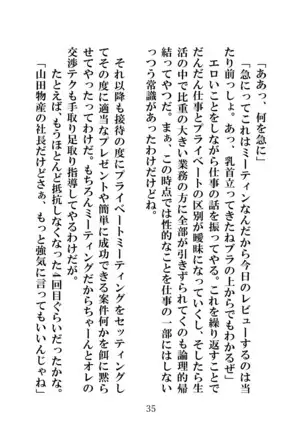 「ああっ、何を急に」
「急にってこれはミーティングなんだから今日のレビューするのは当
たり前っしょ。あっ、乳首立ってきたねブラの上からでもわかるぜ」
エロいことをしながら仕事の話を振ってやる。これを繰り返すことで
だんだん仕事とプライベートの区別が曖昧になっていくし、そしたら生
活の中で比重の大きい業務の方に全部が引きずられてくのも論理的帰
結ってやつだ。まぁ、この時点では性的なことを仕事の一部にはしない
っつう常識があったわけだけどね。
それ以降も接待の度にプライベートミーティングをセッティングし
てその度に適当なプレゼントや簡単に成功できる案件何かを餌に黙ら
せてやったってわけだ。もちろんミーティングだからちゃーんとオレの
交渉テクも手取り足取り指導してやるわけだが。
たとえば、もうほとんど抵抗しなくなった二回目ぐらいだったかな。
「山田物産の社長だけどさぁ、もっと強気に言ってもいいんじゃね」
35